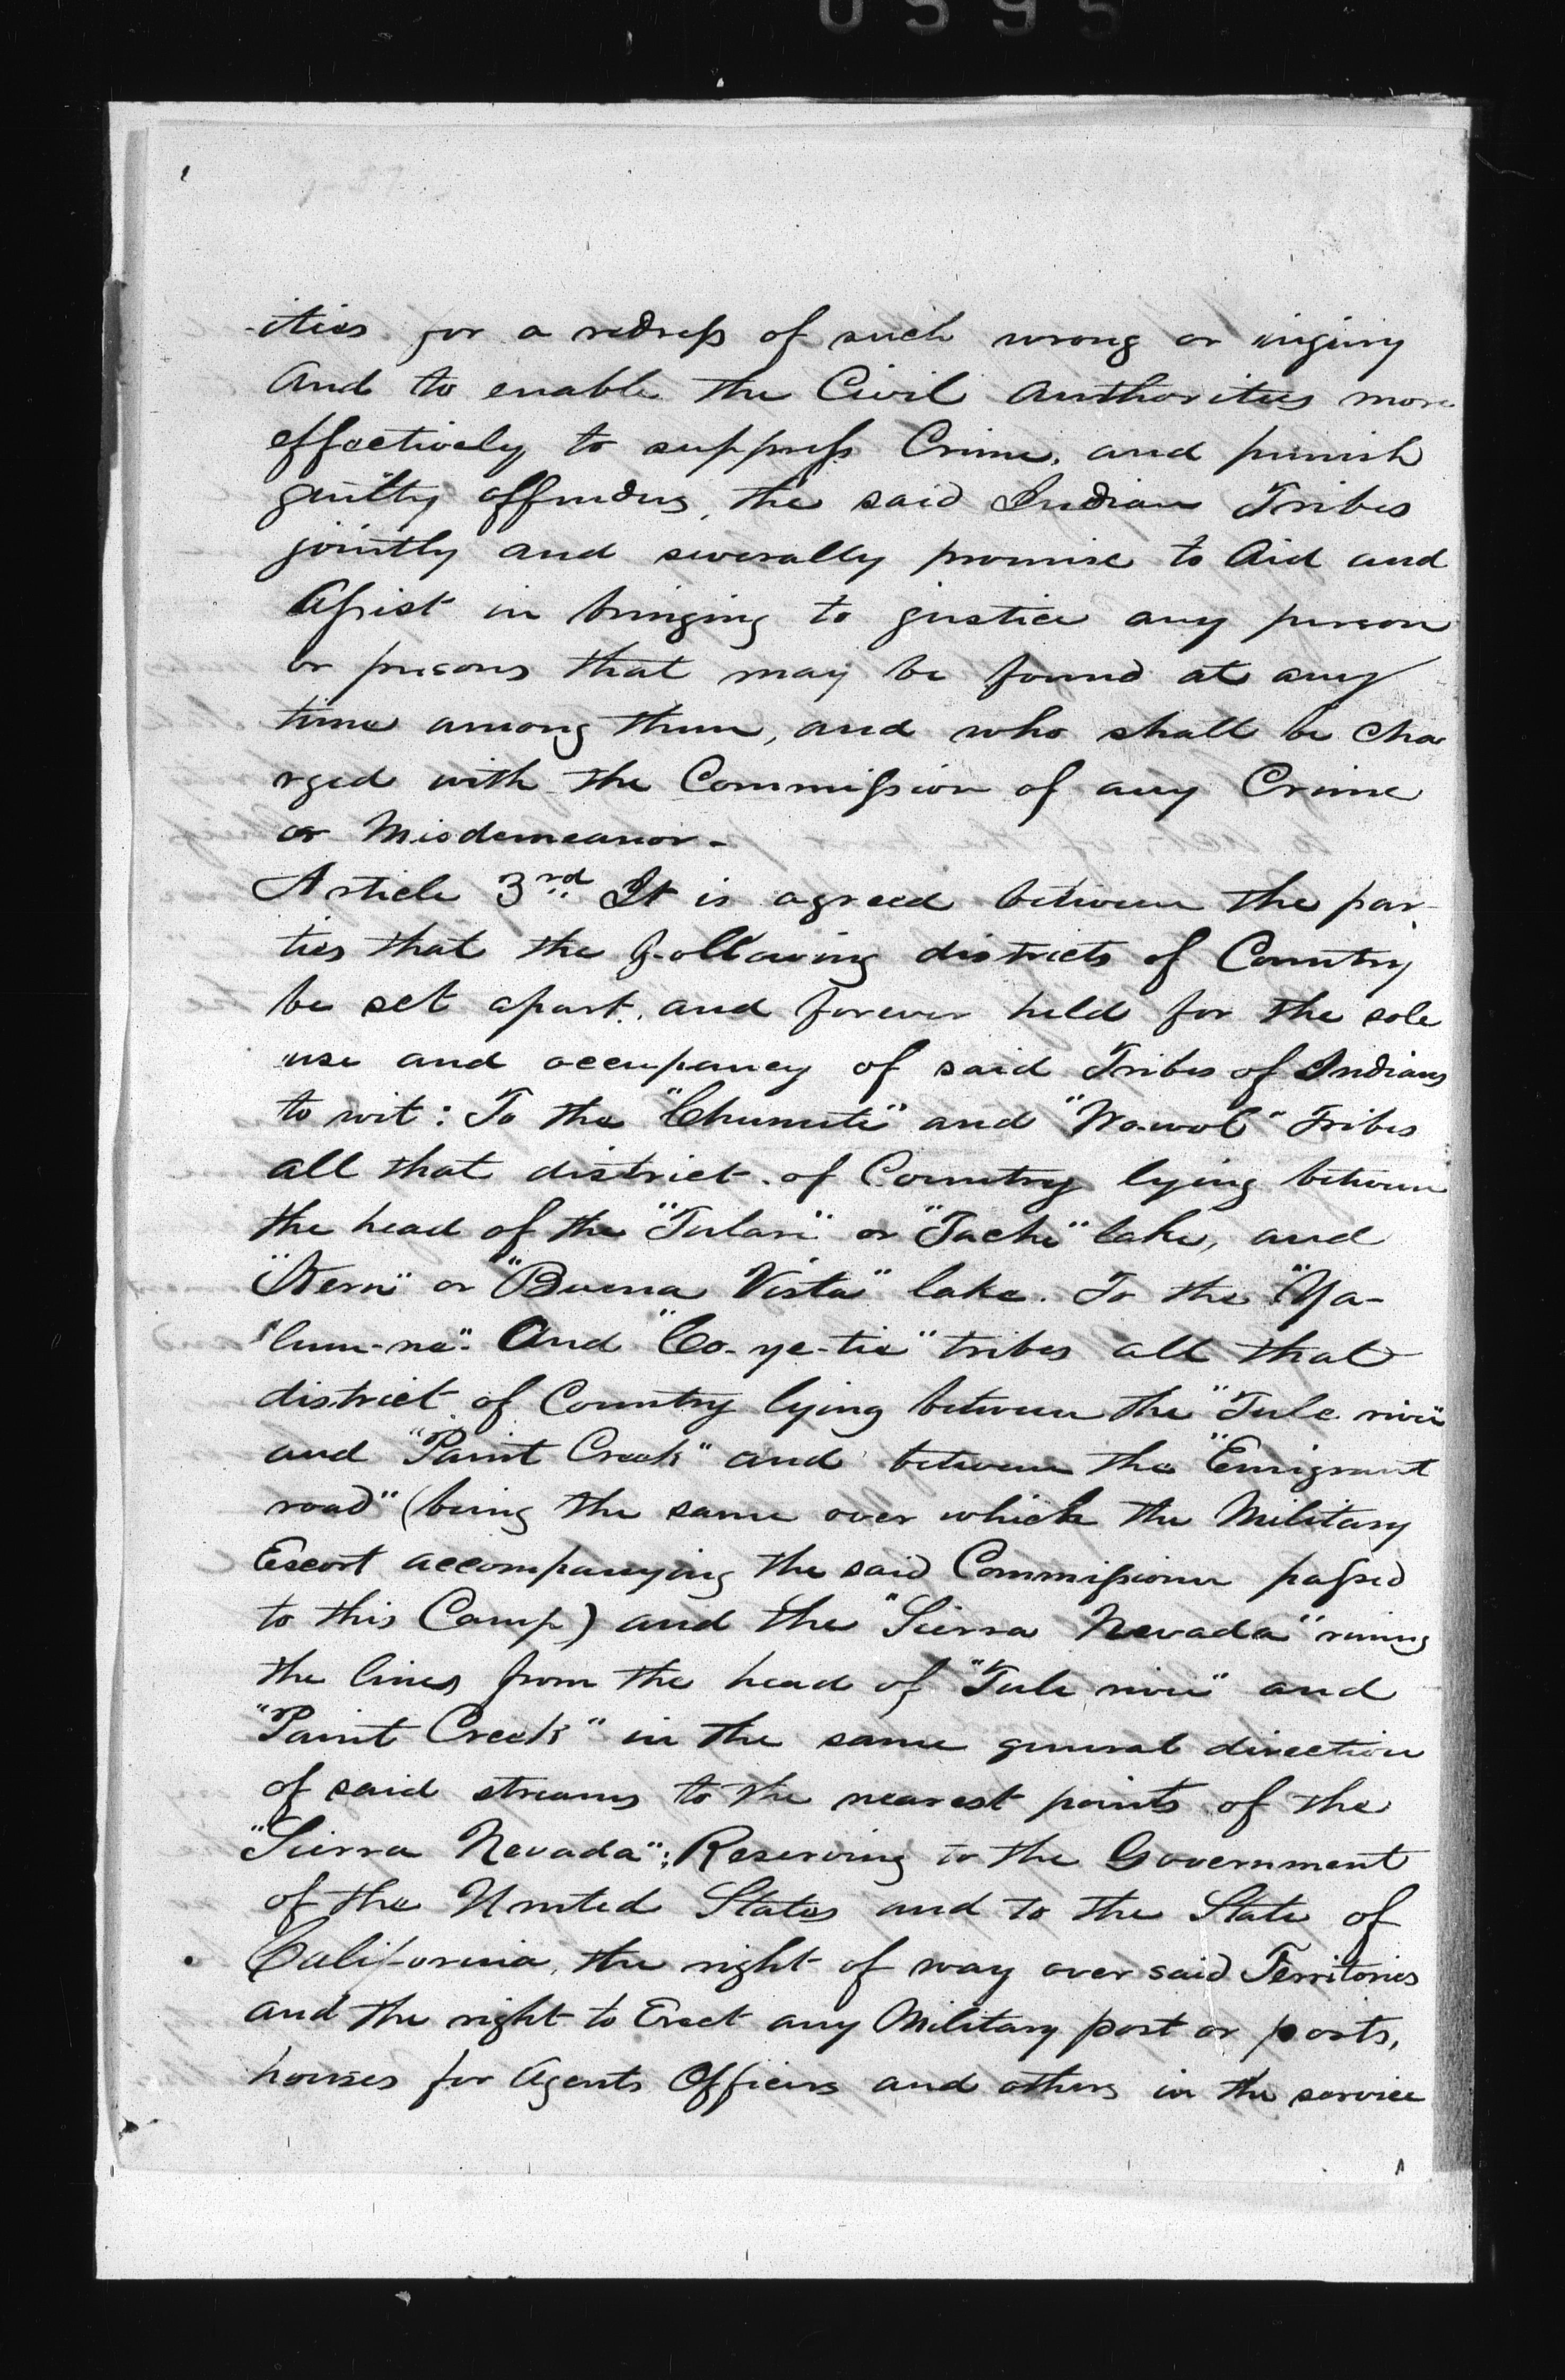 0595
-ities for a redress of such wrong or injury
And to enable the Civil Authorities more
effectively to suppress Crime, and punish
guilty offenders, the said Indian Tribes
jointly and severally promise to Aid and
Assist in bringing to justice any person
or persons that may be found at any
time among them, and who shall be cha
rged with the Commission of any Crime
or Misdemeanor-
Article 3rd It is agreed between the par-
ties that the following districts of Country
be set apart, and forever held for the sole
use and occupancy of said Tribes of Indians
to wit: To the "Chunute" and "Wowol" Tribes
all that district of Country lying between
the head of the "Tulare" or "Tache" lake, and
"Kern" or "Buena Vista" lake. To the "Ya-
"lum-ne". And "Co-ye-tie" tribes all that
district of Country lying between the "Tule river"
and "Paint Creek" and between the "Emigrant
road" (being the same over which the Military
Escort accompanying the said Commissioner passed
to this Camp) and the "Sierra Nevada" runing
the lines from the head of "Tule river" and
"Paint Creek" in the same general direction
of said streams to the nearest points of the
"Sierra Nevada"; Reserving to the Government
of the United States and to the State of
California, the right of way over said Territories
and the right to Erect any Military post or posts,
houses for Agents Officers and others in the service